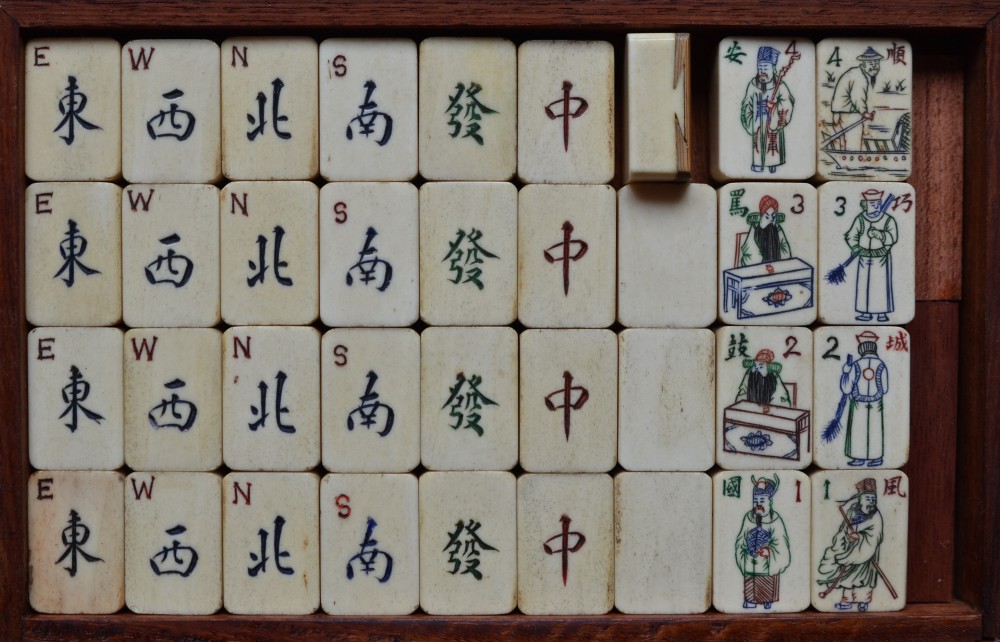 E 東 W 西 N 北 S 南 發 中 安 4 4 順
E 東 W 西 N 北 S 南 發 中 罵 3 3 巧
E 東 W 西 N 北 S 南 發 中 鼓 2 2 城
E 東 W 西 N 北 S 南 發 中 國 1 1 風